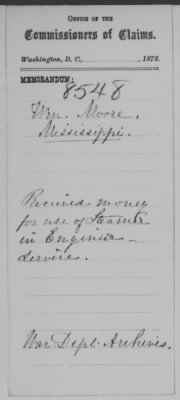 OFFICE OF THE
Commissioners of Claims.
Washington, D. C., , 1872.
MEMORANDUM:
8548
Wm. Moore,
Mississippi.
Received money
for use of Steamer
in Engineer
Service.
War Dept. Archives.